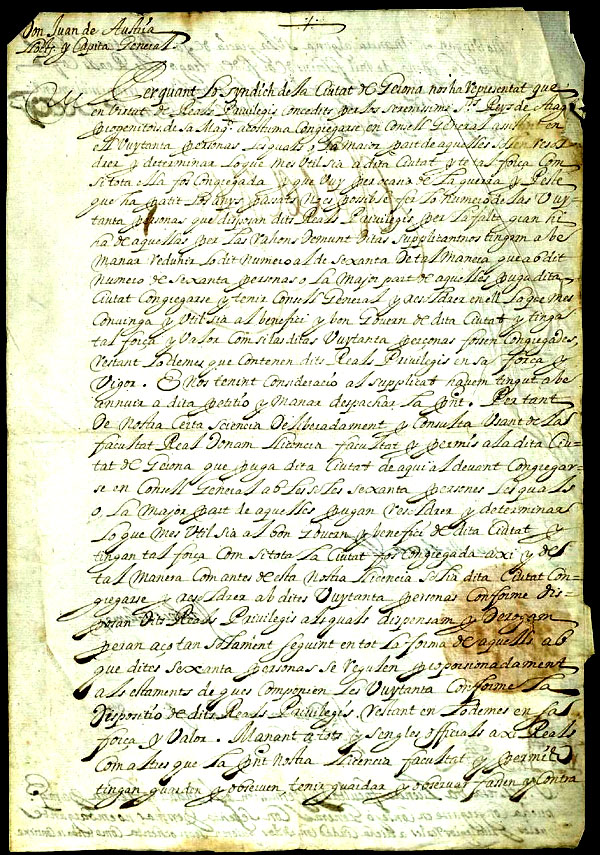 Don Juan de Austria
y Capita General
Perquant lo syndich de la Ciutat de Gerona nos ha representat que
en virtut de Reals Privilegis concedits per los serenissims Srs Reys de Arag
progenitors de sa Magt acostuma Congregarse en Consell General
en vuytanta personas les quals o la major part de aquelles solen resol
drer y determinar lo que mes util sia a dita Ciutat y te tal força com
si tota ella fos Congregada y que vuy per causa de la guerra y Peste
que ha patit los anys passats no es possible fer lo numero de las vuy-
tanta personas que disposan dits Reals Privilegis per la falta gran hi
ha de aquellas per las rahons demunt ditas supplicantnos tingam a be
manar reduhir lo dit numero al de sexanta De tal manera que ab dit
numero de sexanta personas o la Major part de aquelles puga dita
Ciutat Congregarse y tenir Consell General y resoldrer en ell lo que mes
convinga y util sia al benefici y bon govern de dita Ciutat y tinga
tal força y valor com si las ditas vuytanta personas fossen Congregades,
restant lo demes que contenen dits Reals Privilegis en sa força y
vigor. E Nos tenint Consideracio al supplicat havem tingut a be
annuir a dita petitio y manar despachar la pnt. Per tant
De nostra certa sciencia Deliberadament y consulta usant de la
facultat Real donam llicencia facultat y permis a la dita Ciu-
tat de Gerona que puga dita Ciutat de aqui al devant Congregar-
se en Consell General ab les dites sexanta persones les quals
o la major part de aquelles pugan resoldrer y determinar
lo que mes util sia al bon govern y benefici de dita Ciutat y
tingan tal força com si tota la Ciutat fos Congregada axi y de
tal manera com antes de esta nostra llicencia solia dita Ciutat Con-
gregarse y resoldrer ab dites vuytanta personas conforme dis-
posan dits Reals Privilegis als quals dispensam y Derogam
per an açò tan solament seguint en tot la forma de aquells ab
que dites sexanta personas se regulen proporsionadament
als estaments de ques componien les vuytanta conforme la
Dispositio de dits Reals Privilegis, restant en lo demes en sa
força y valor. Manant a tots y sengles officials axi Reals
com altres que la pnt nostra llicencia facultat y permis
tingan guarden y observen tenir guardar y observar fassen y contra